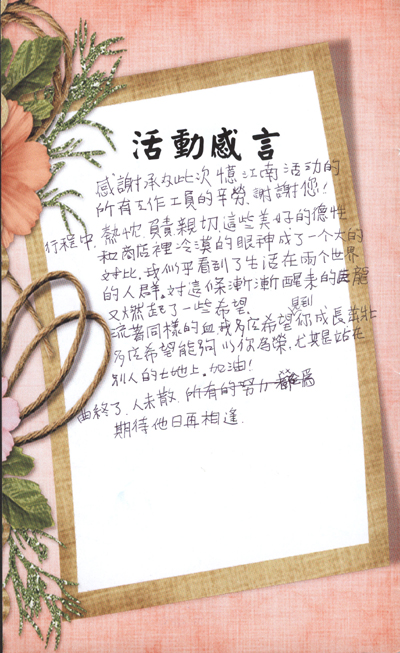 活動感言
感謝承办此次憶江南活动的
所有工作工員的辛勞,謝謝您!
行程中,熱忱負責親切,這些美好的德性
和商店裡冷漠的眼神成了一个大的
对比,我似乎看到了生活在兩个世界
的人群。对這條漸漸醒来的巨龍
又燃起了一些希望,
流著同樣的血,我多麼希望見到你成長茁壯
多么希望能夠以你為榮,尤其是站在
別人的土地上。加油!
曲終了,人未散,所有的努力
期待他日再相逢.